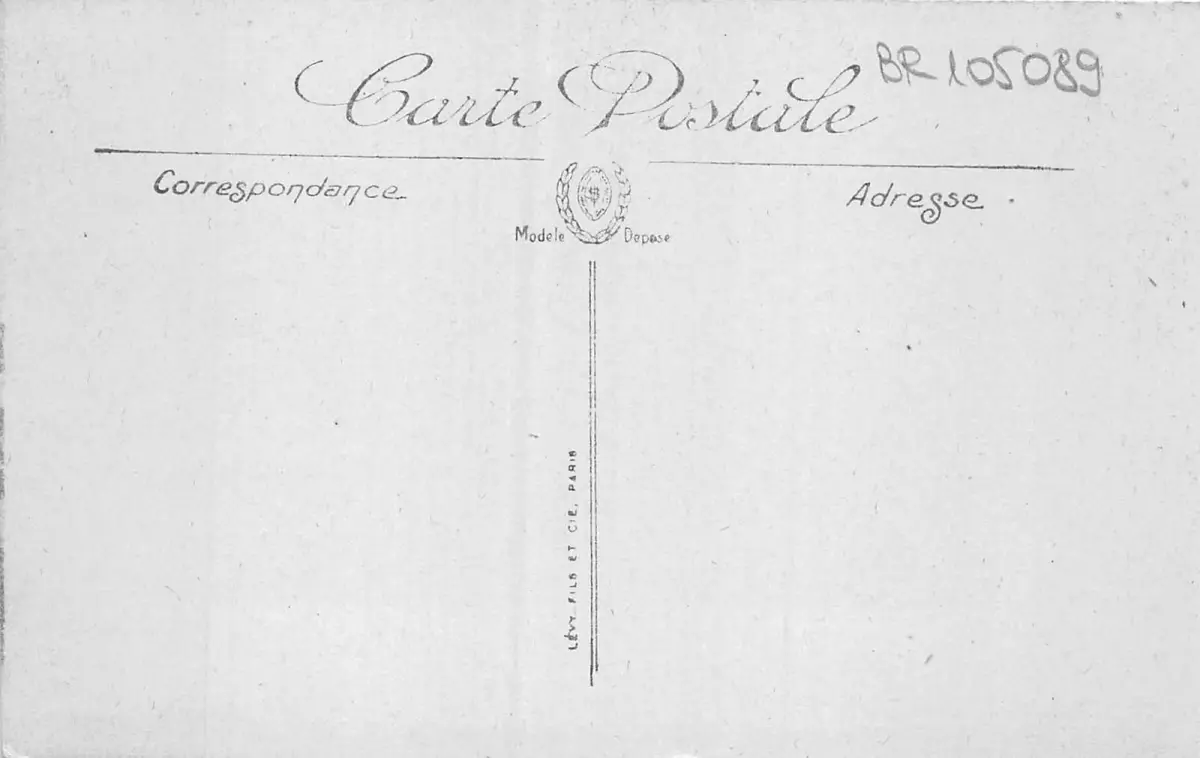 Carte Postale
BR 105089
Correspondance
Adresse
Modele Depose
LÉVY FILS ET CIE, PARIS